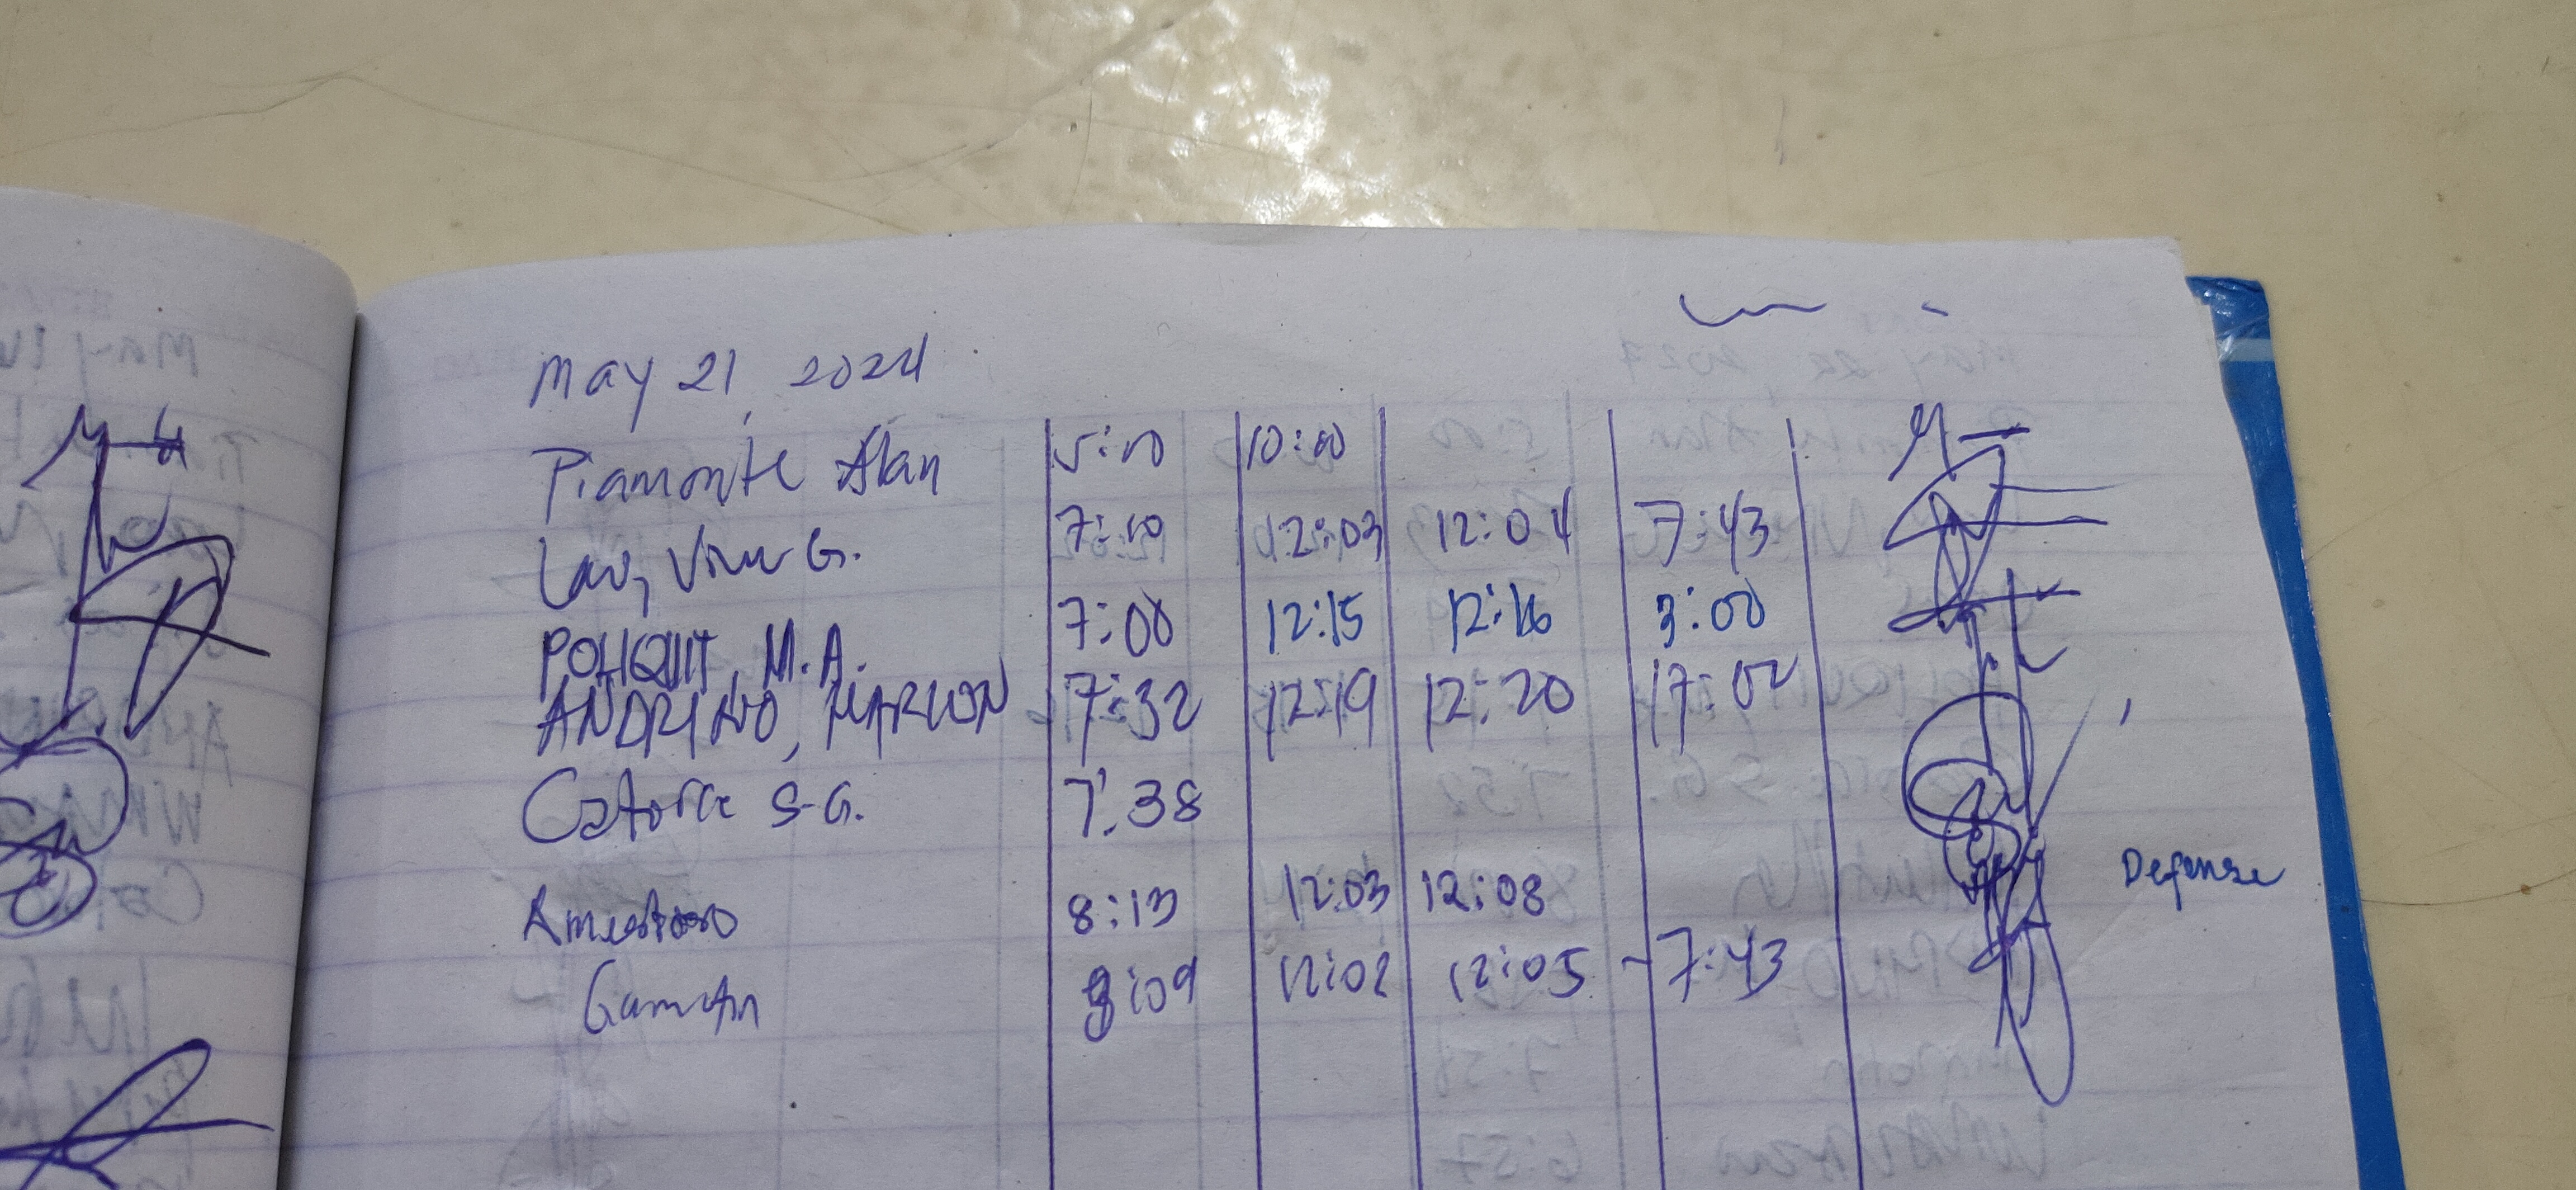 May 21, 2024
Piamonte Alan 5:00 10:00
Lao, G. 7:10 12:03 12:04 7:43
POLIQUIT, M.A. 7:00 12:15 12:16 3:00
ANDRINO, MARLON 7:32 12:19 12:20 17:02
Catorce S.G. 7:38
8:13 12:03 12:08 Defense
Gamotin 8:09 12:02 12:05 - 7:43